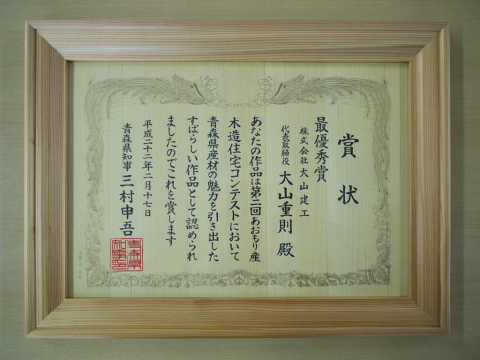 賞状
最優秀賞
株式会社 大山建工
代表取締役 大山重則 殿
あなたの作品は第二回あおもり産
木造住宅コンテストにおいて
青森県産材の魅力を引き出した
すばらしい作品として認められ
ましたのでこれを賞します
平成二十二年二月十七日
青森県知事 三村申吾